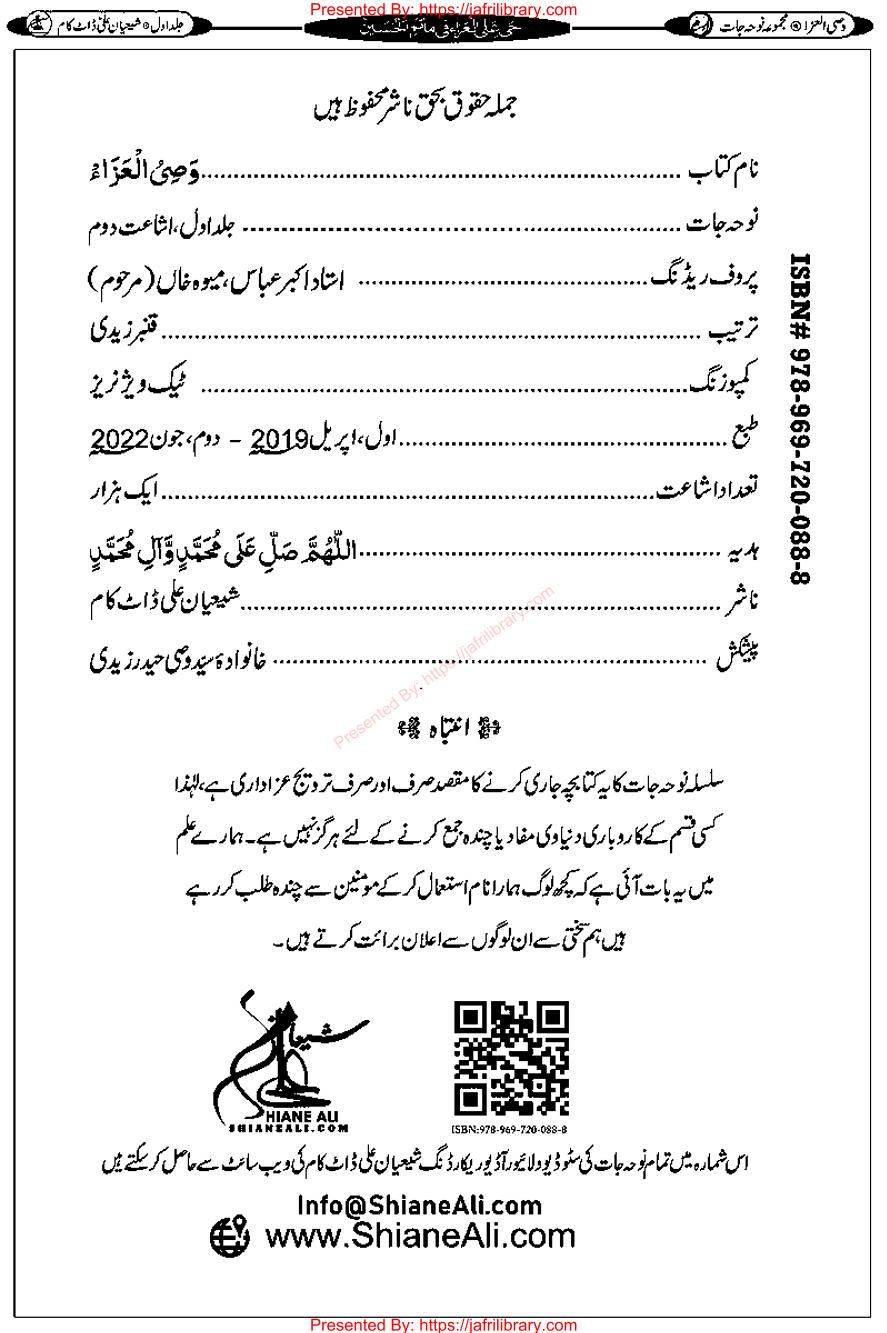 Presented By: https://jafrilibrary.com
وصی العزا ۞ مجموعہ نوحہ جات
حَیَّ عَلَی الْعَزَاءِ فِی مَاتَمِ الْحُسَیْنِ
جلد اول ۞ شیعیان علی ڈاٹ کام
جملہ حقوق بحق ناشر محفوظ ہیں
نام کتاب ........ وَصِیُ الْعَزَاءْ
نوحہ جات ........ جلد اول، اشاعت دوم
پروف ریڈنگ ........ استاد اکبر عباس، میوہ خاں (مرحوم)
ترتیب ........ قنبر زیدی
کمپوزنگ ........ ٹیک ویژنریز
طبع ........ اول، اپریل 2019 - دوم، جون 2022
تعداد اشاعت ........ ایک ہزار
ہدیہ ........ اللّٰهُمَّ صَلِّ عَلَى مُحَمَّدٍ وَّآلِ مُحَمَّدٍ
ناشر ........ شیعیان علی ڈاٹ کام
پیشکش ........ خانوادۂ سیّد وصی حیدر زیدی
ISBN# 978-969-720-088-8
Presented By: https://jafrilibrary.com
انتباہ
سلسلہ نوحہ جات کا یہ کتابچہ جاری کرنے کا مقصد صرف اور صرف ترویج عزاداری ہے، لہٰذا
کسی قسم کے کاروباری دنیاوی مفاد یا چندہ جمع کرنے کے لئے ہرگز نہیں ہے۔ ہمارے علم
میں یہ بات آئی ہے کہ کچھ لوگ ہمارا نام استعمال کر کے مومنین سے چندہ طلب کر رہے
ہیں ہم سختی سے ان لوگوں سے اعلان برائت کرتے ہیں۔
شیعیان
SHIANE ALI
SHIANEALI.COM
ISBN:978-969-720-088-8
اس شمارہ میں تمام نوحہ جات کی سٹوڈیو و لائیو آڈیو ریکارڈنگ شیعیان علی ڈاٹ کام کی ویب سائٹ سے حاصل کر سکتے ہیں
Info@ShianeAli.com
www.ShianeAli.com
Presented By: https://jafrilibrary.com